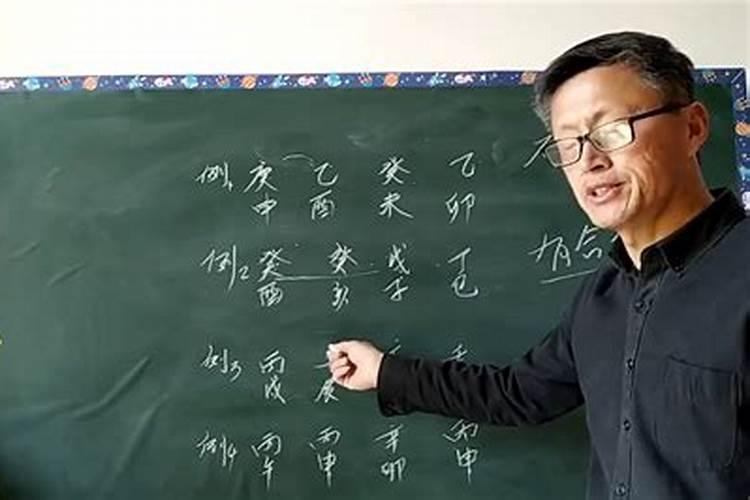 例1 庚 乙 癸 乙
申 酉 未 卯
例2 癸 癸 戊 丁 有合
酉 亥 子 巳
例3 丙
戌 辰
例4 丙 丙 辛 丙
午 申 卯 申